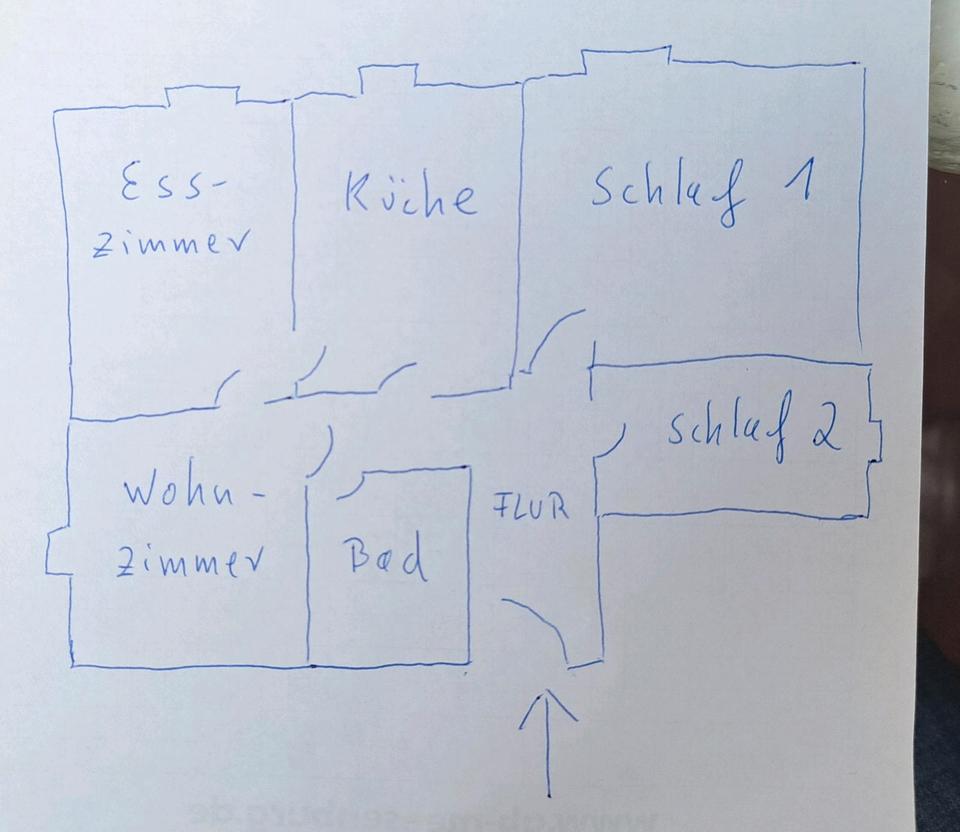 Ess-
zimmer
Küche
Schlaf 1
Schlaf 2
Wohn-
zimmer
Bad
FLUR